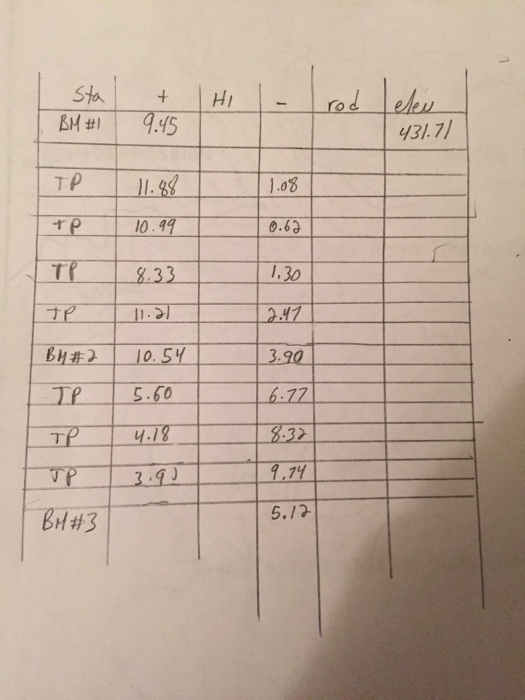 Sta + HI - rod elev
BM #1 9.45 431.71
TP 11.88 1.08
TP 10.99 0.62
TP 8.33 1.30
TP 11.21 2.47
BM #2 10.54 3.90
TP 5.60 6.77
TP 4.18 8.32
TP 9.74
BM #3 5.12